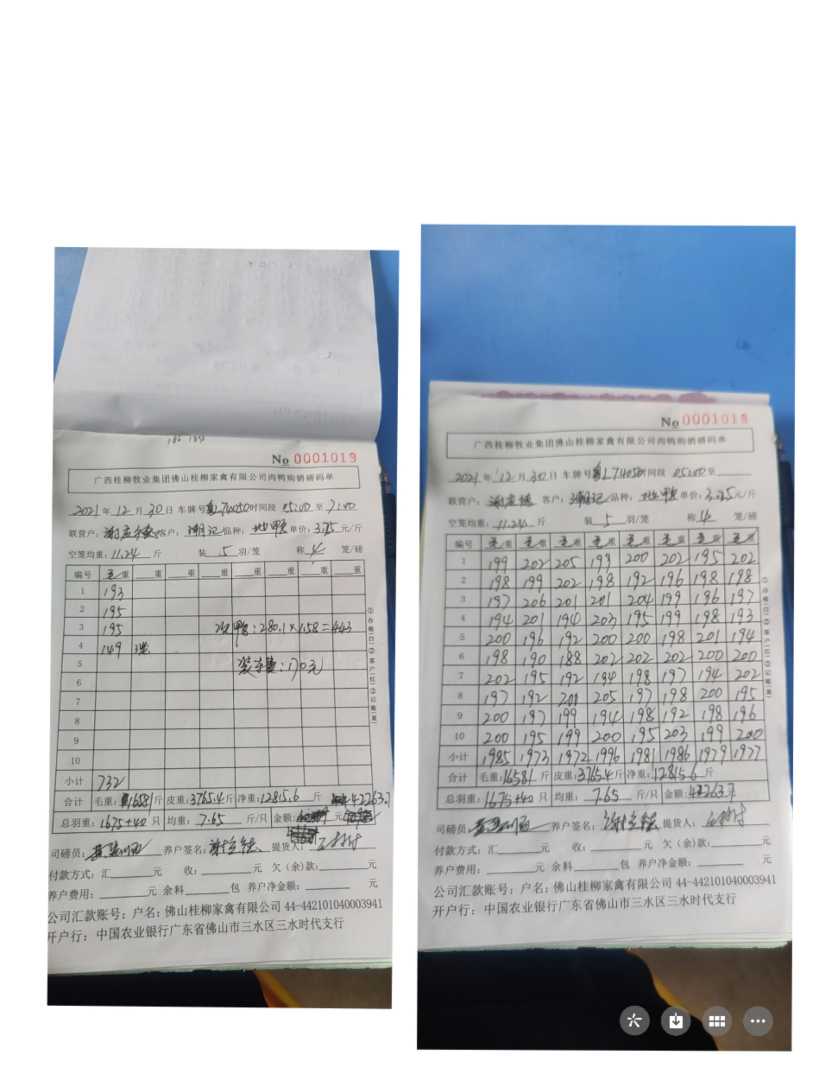 No 0001019
广西桂柳牧业集团佛山桂柳家禽有限公司肉鸭购销磅码单
2021年 12月 30日 车牌号 L74050时间段 05:00 至 7:00
联营户： 客户：潮记 品种： 单价：3.75 元/斤
空笼均重：11.24 斤 装 5 羽/笼 称 4 笼/磅
编号 毛重 重 重 重 重 重 重 重
1 193
2 195
3 195
4 149 3笼
5
6
7
8
9
10
鸭：280.1×1.58=443
装车费：170元
小计 732
合计 毛重：16581斤 皮重：3765.4斤 净重：12815.6 斤 42263.7
总羽重：1675+40 只 均重：7.65 斤/只 金额： 元
司磅员： 养户签名： 提货人：
付款方式：汇 元 收： 元 欠（余）款： 元
养户费用： 元 余料 包 养户净金额： 元
公司汇款账号：户名：佛山桂柳家禽有限公司 44-442101040003941
开户行：中国农业银行广东省佛山市三水区三水时代支行
①存根（白）②客户（红）③司磅（黄）
No 0001018
广西桂柳牧业集团佛山桂柳家禽有限公司肉鸭购销磅码单
2021年 12月 30日 车牌号 L74050时间段 05:00至
联营户： 客户：潮记 品种： 单价：3.75元/斤
空笼均重：11.24 斤 装 5 羽/笼 称 4 笼/磅
编号 毛重 毛重 毛重 毛重 毛重 毛重 毛重 毛重
1 199 202 205 199 200 202 195 202
2 198 199 202 198 192 196 198 198
3 197 206 201 201 204 199 196 197
4 194 201 194 203 195 199 198 193
5 200 196 192 200 200 198 201 194
6 198 190 188 202 202 202 200 200
7 202 195 192 194 198 197 194 202
8 197 192 200 205 197 198 200 195
9 200 197 199 194 198 192 198 196
10 200 195 199 200 195 203 199 200
小计 1985 1973 1972 1996 1981 1986 1979 1977
合计 毛重：16581 斤 皮重：3765.4斤 净重：12815.6 斤
总羽重：1675+40 只 均重：7.65 斤/只 金额：42263.7
司磅员： 养户签名： 提货人：
付款方式：汇 元 收： 元 欠（余）款： 元
养户费用： 元 余料 包 养户净金额： 元
公司汇款账号：户名：佛山桂柳家禽有限公司 44-442101040003941
开户行：中国农业银行广东省佛山市三水区三水时代支行
①存根（白）②客户（红）③司磅（黄）